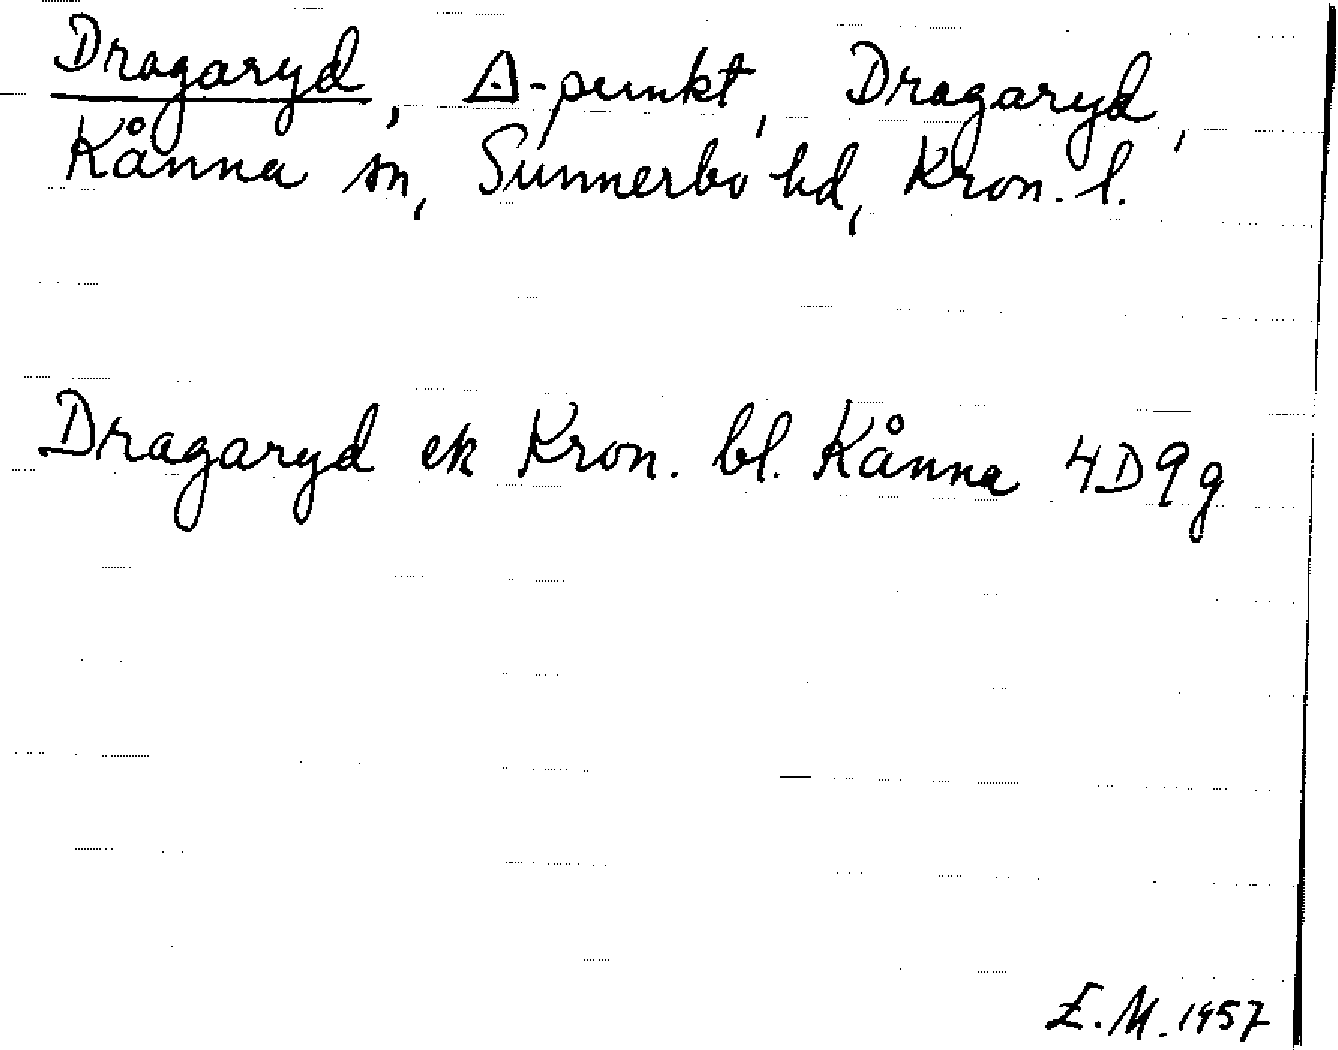 Dragaryd, △-punkt, Dragaryd,
Kånna sn, Sunnerbo hd, Kron. l.
Dragaryd ek Kron. bl. Kånna 4D9g
E.M. 1957